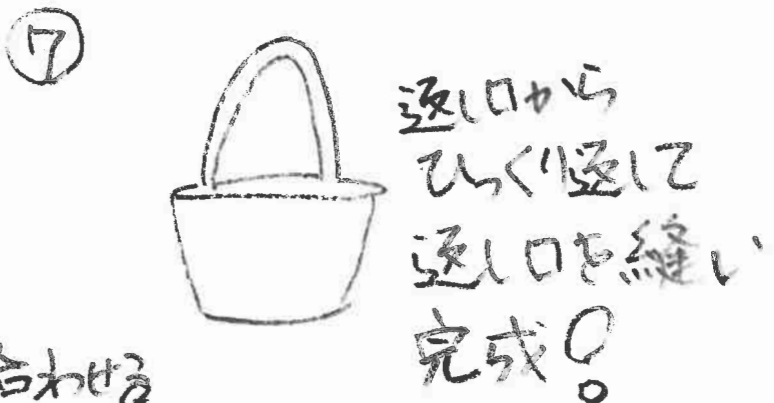 ⑦
返し口から
ひっくり返して
返し口を縫い
完成!
合わせる